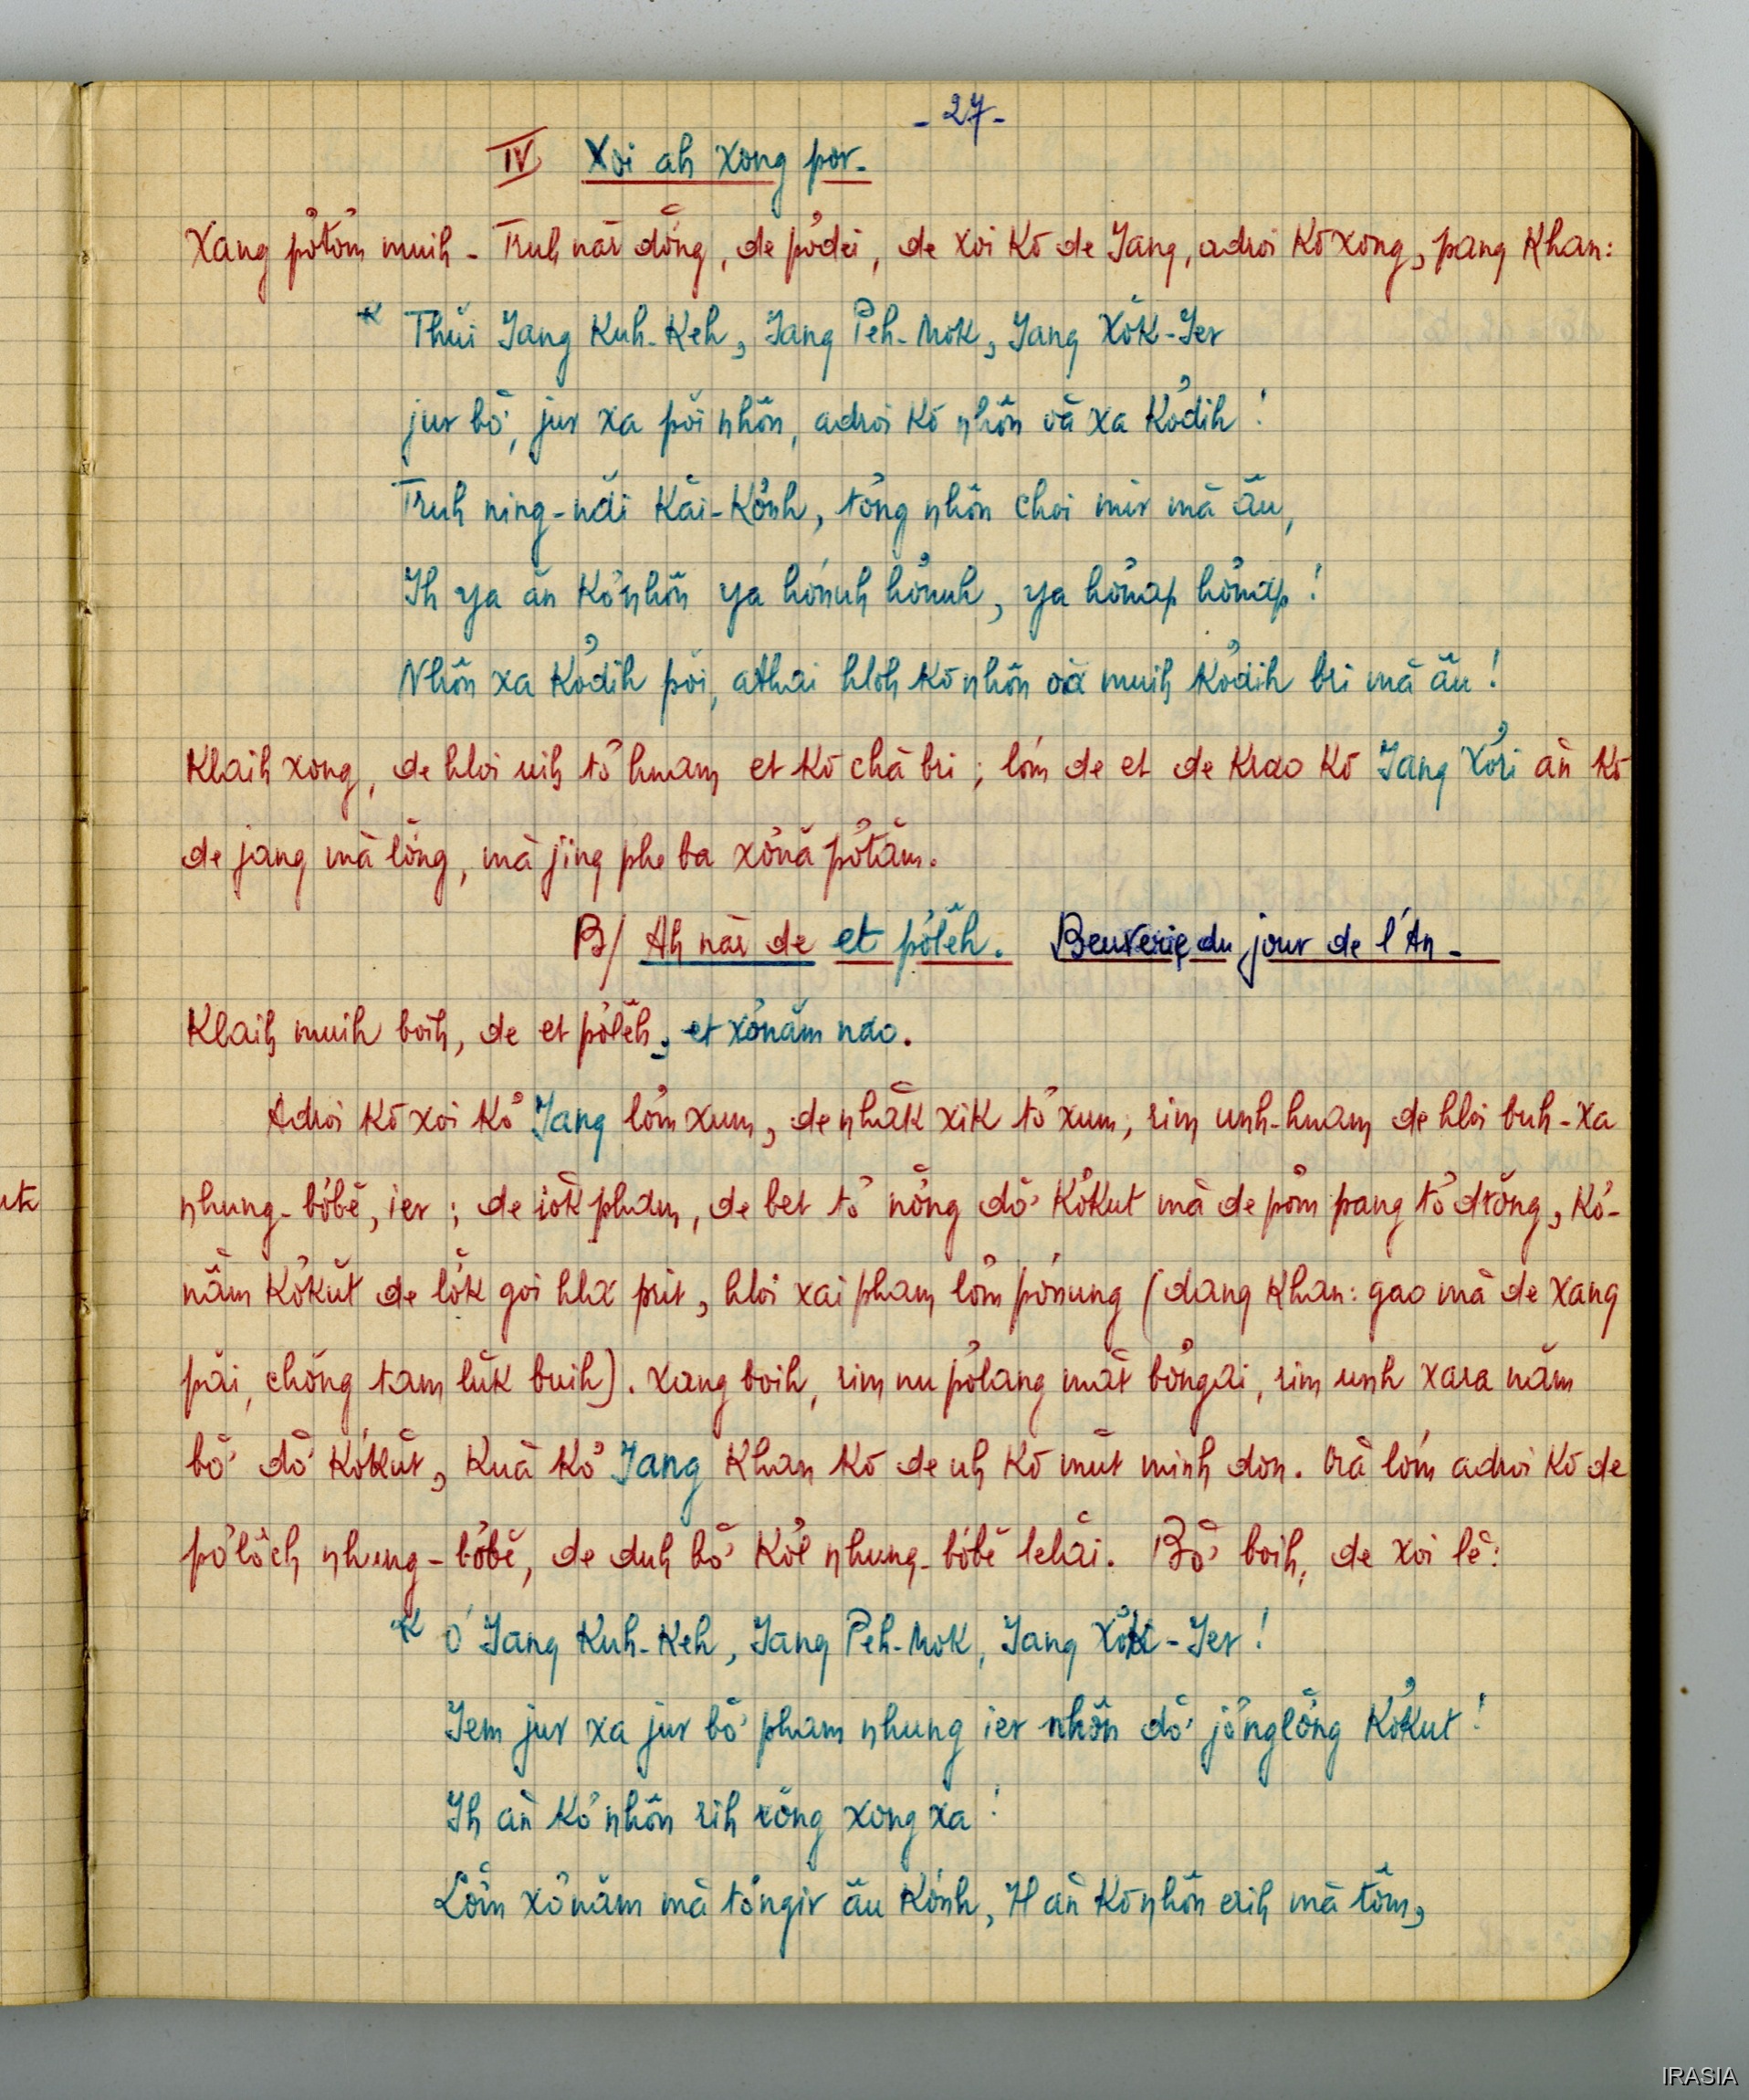 - 27 -
IV Xoi ah xong por.
Xang pơ̆tơ̆m muih - Truh năr dơ̆ng, de pơ̆dei, de xoi kơ̆ de Jang, adroi kơ̆ xong, pang khan:
* Thŭi Jang Kuh-Keh, Jang Peh-Mok, Jang Xŏk-Jer
jur bơ̆, jur xa pơ̆i nhôn, adroi kơ̆ nhôn vă xa kơ̆dih !
Truh ning-năi kăi-kơ̆nh, tơ̆ng nhôn choi mir mă ău,
Ih ya ăn kơ̆ nhôn ya hơ̆nuh hơ̆nuh, ya hơ̆nap hơ̆nap !
Nhôn xa kơ̆dih pơ̆i, athai hloh kơ̆ nhôn vă muih kơ̆dih bri mă ău !
Klaih xong, de hloi vih tơ̆ hnam et kơ̆ chă bri ; lơ̆m de et de krao kơ̆ Jang Xơ̆ri ăn kơ̆
de jang mă lơ̆ng, mă jing phe ba xơ̆nă pơ̆tăm.
B/ Ah năr de et pơ̆lĕh. Beuverie du jour de l'An -
Klaih muih boih, de et pơ̆lĕh, et xơ̆năm nao.
Adroi kơ̆ xoi kơ̆ Jang lơ̆m xum, de nhăk xik tơ̆ xum, rim unh-hnam de hloi buh-xa
nhung-bơ̆bĕ, ier ; de iŏk pham, de bet tơ̆ nơ̆ng dơ̆ kơ̆kut mă de pơ̆m pang tơ̆ drơ̆ng, kơ̆-
năm kơ̆kŭt de lŏk goi hla prit, hloi xai pham lơ̆m pơ̆nung (dang khan: gao mă de xang
păi, chơ̆ng tam lŭk buih). Xang boih, rim nu pơ̆lang măt bơ̆ngai, rim unh xara năm
bơ̆ dơ̆ kơ̆kŭt, kuă kơ̆ Jang khan kơ̆ de uh kơ̆ mŭt minh don. Vă lơ̆m adroi kơ̆ de
pơ̆lŏch nhung-bơ̆bĕ, de duh bơ̆ kơ̆l nhung-bơ̆bĕ lehăi. Bơ̆ boih, de xoi lĕ:
* Ơ Jang Kuh-Keh, Jang Peh-Mok, Jang Xŏk-Jer !
Jem jur xa jur bơ̆ pham nhung ier nhôn dơ̆ jơ̆nglơ̆ng kơ̆kut !
Ih ăn kơ̆ nhôn rih rơ̆ng xong xa !
Lơ̆m xơ̆năm mă tơ̆ngir ău kơ̆nh, Ih ăn kơ̆ nhôn erih mă tơ̆m,
IRASIA